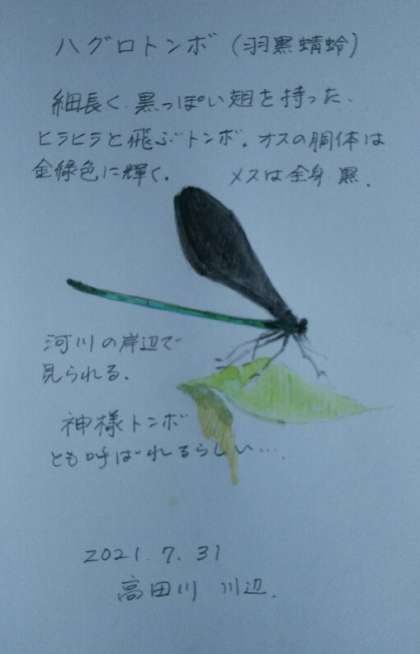 ハグロトンボ(羽黒蜻蛉)
細長く、黒っぽい翅を持った、
ヒラヒラと飛ぶトンボ。オスの胴体は
金緑色に輝く。 メスは全身 黒.
河川の岸辺で
見られる.
神様トンボ
とも呼ばれるらしい….
2021. 7. 31
高田川 川辺.